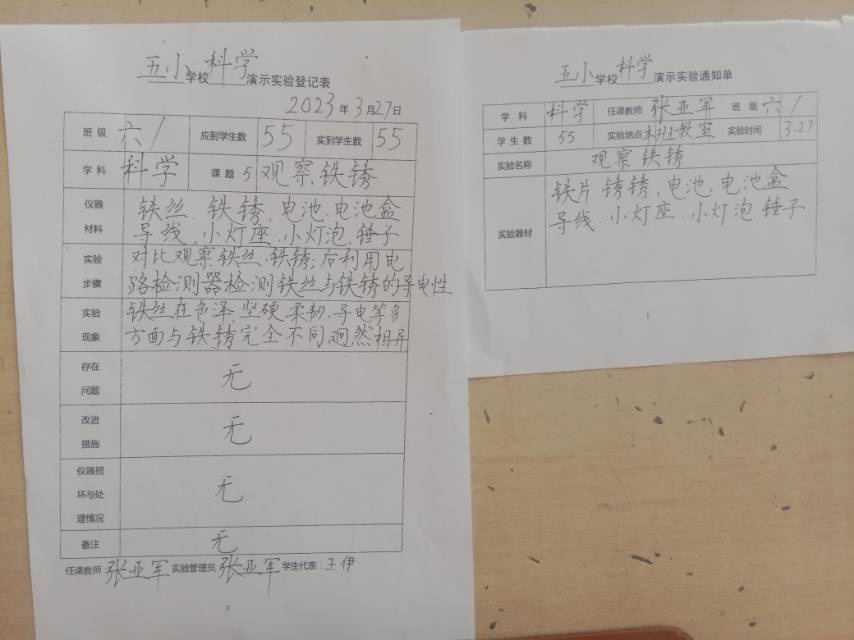 五小学校科学演示实验登记表
2023年3月27日
班级 六1 应到学生数 55 实到学生数 55
学科 科学 课题 5 观察铁锈
仪器材料 铁丝、铁锈、电池、电池盒
导线、小灯座、小灯泡、锤子
实验步骤 对比观察铁丝、铁锈;后利用电
路检测器检测铁丝与铁锈的导电性
实验现象 铁丝在色泽、坚硬、柔韧、导电等多
方面与铁锈完全不同,迥然相异
存在问题 无
改进措施 无
仪器损坏与处理情况 无
备注 无
任课教师 张亚军 实验管理员 张亚军 学生代表:王伊
五小学校科学演示实验通知单
学科 科学 任课教师 张亚军 班级 六1
学生数 55 实验地点 教室 实验时间 3.27
实验名称 观察铁锈
实验器材 铁片 锈锈、电池、电池盒
导线、小灯座、小灯泡、锤子
1